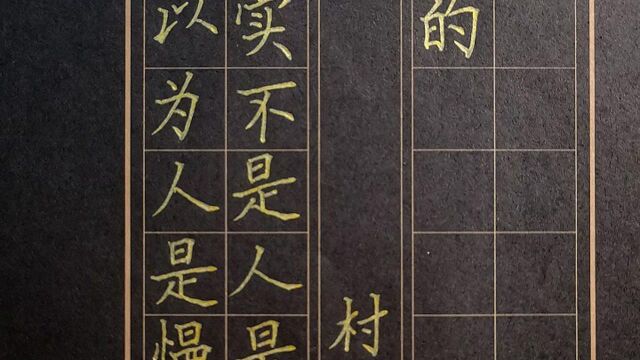 以为人是慢
实不是人是
村
的